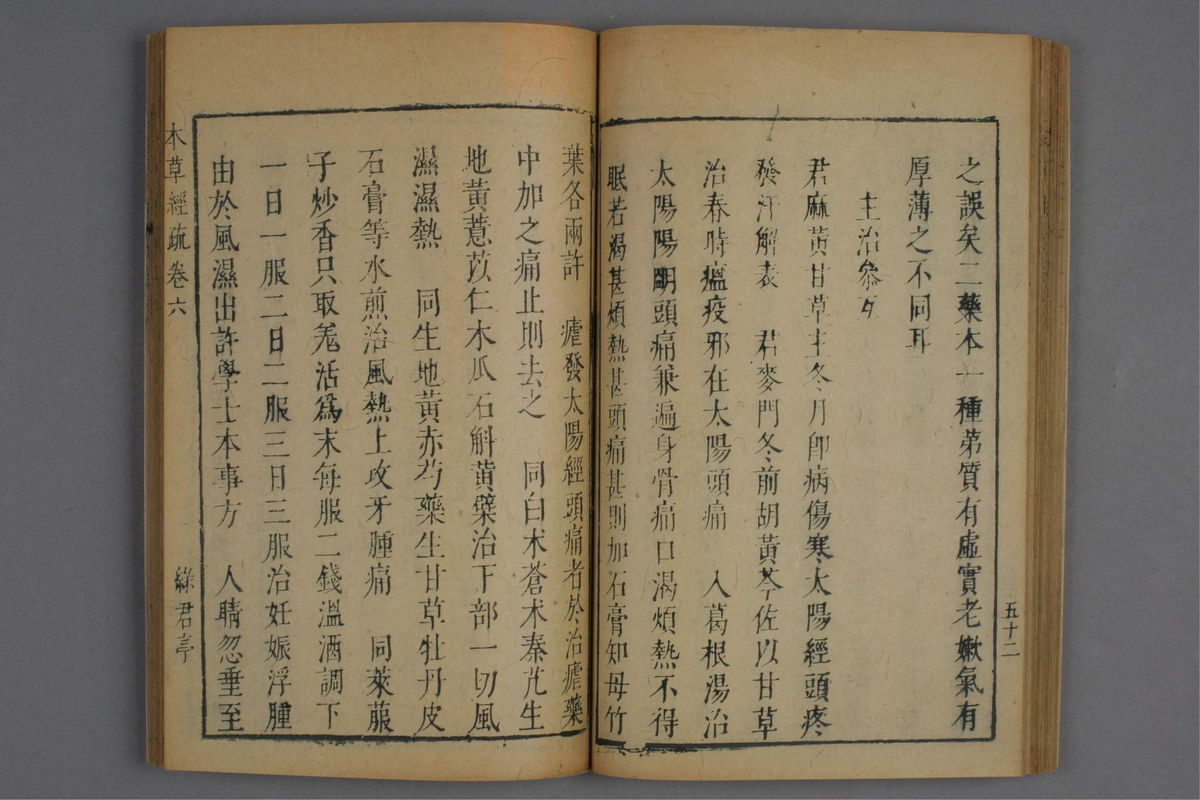 之誤矣二藥本一種第質有虛實老嫩氣有
厚薄之不同耳
主治參互
君麻黃甘草主冬月即病傷寒太陽經頭疼
發汗解表　君麥門冬前胡黃芩佐以甘草
治春時瘟疫邪在太陽頭痛　入葛根湯治
太陽陽明頭痛兼遍身骨痛口渴煩熱不得
眠若渴甚煩熱甚頭痛甚則加石膏知母竹
五十二
葉各兩許　瘧發太陽經頭痛者於治瘧藥
中加之痛止則去之　同白术蒼术秦艽生
地黃薏苡仁木瓜石斛黃檗治下部一切風
濕濕熱　同生地黃赤芍藥生甘草牡丹皮
石膏等水煎治風熱上攻牙腫痛　同萊菔
子炒香只取羗活為末每服二錢溫酒調下
一日一服二日二服三日三服治妊娠浮腫
由於風濕出許學士本事方　人睛忽垂至
本草經疏卷六
綠君亭